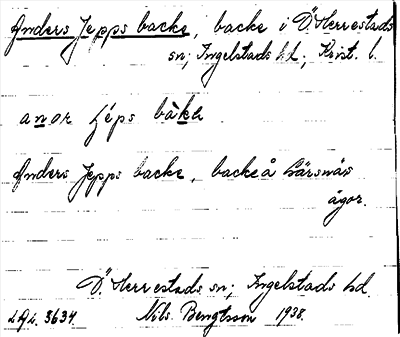 Anders Jepps backe, backe i Ö. Herrestads
sn; Ingelstads hd.; Krist. l.
anər jéps bàkə
Anders Jepps backe, backe å Lärsnäs
ägor.
Ö. Herrestads sn; Ingelstads hd.
L.A.L. 3634. Nils Bengtsson 1938.